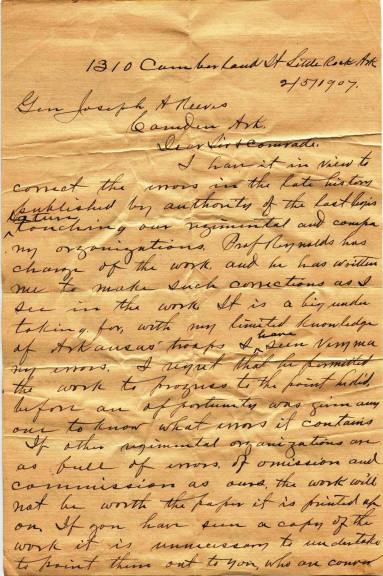 1310 Cumberland St Little Rock Ark
2/5/1907.
Gen Joseph A Reeves
Camden Ark.
Dear Sir & Comrade.
I have it in view to
correct the errors in the late history
published by authority of the last legis
lature touching our regimental and compa
ny organizations. Prof Reynolds has
charge of the work, and he has written
me to make such corrections as I
see in the work. It is a big under
taking. for, with my limited knowledge
of Arkansas' troops I have seen very ma
ny errors. I regret that he permitted
the work to progress to the point he did,
before an opportunity was given any
one to know what errors it contains
If other regimental organizations are
as full of errors, of omission and
commission as ours, the work will
not be worth the paper it is printed up
on. If you have seen a copy of the
work it is unnecessary to undertake
to point them out to you, who are conver